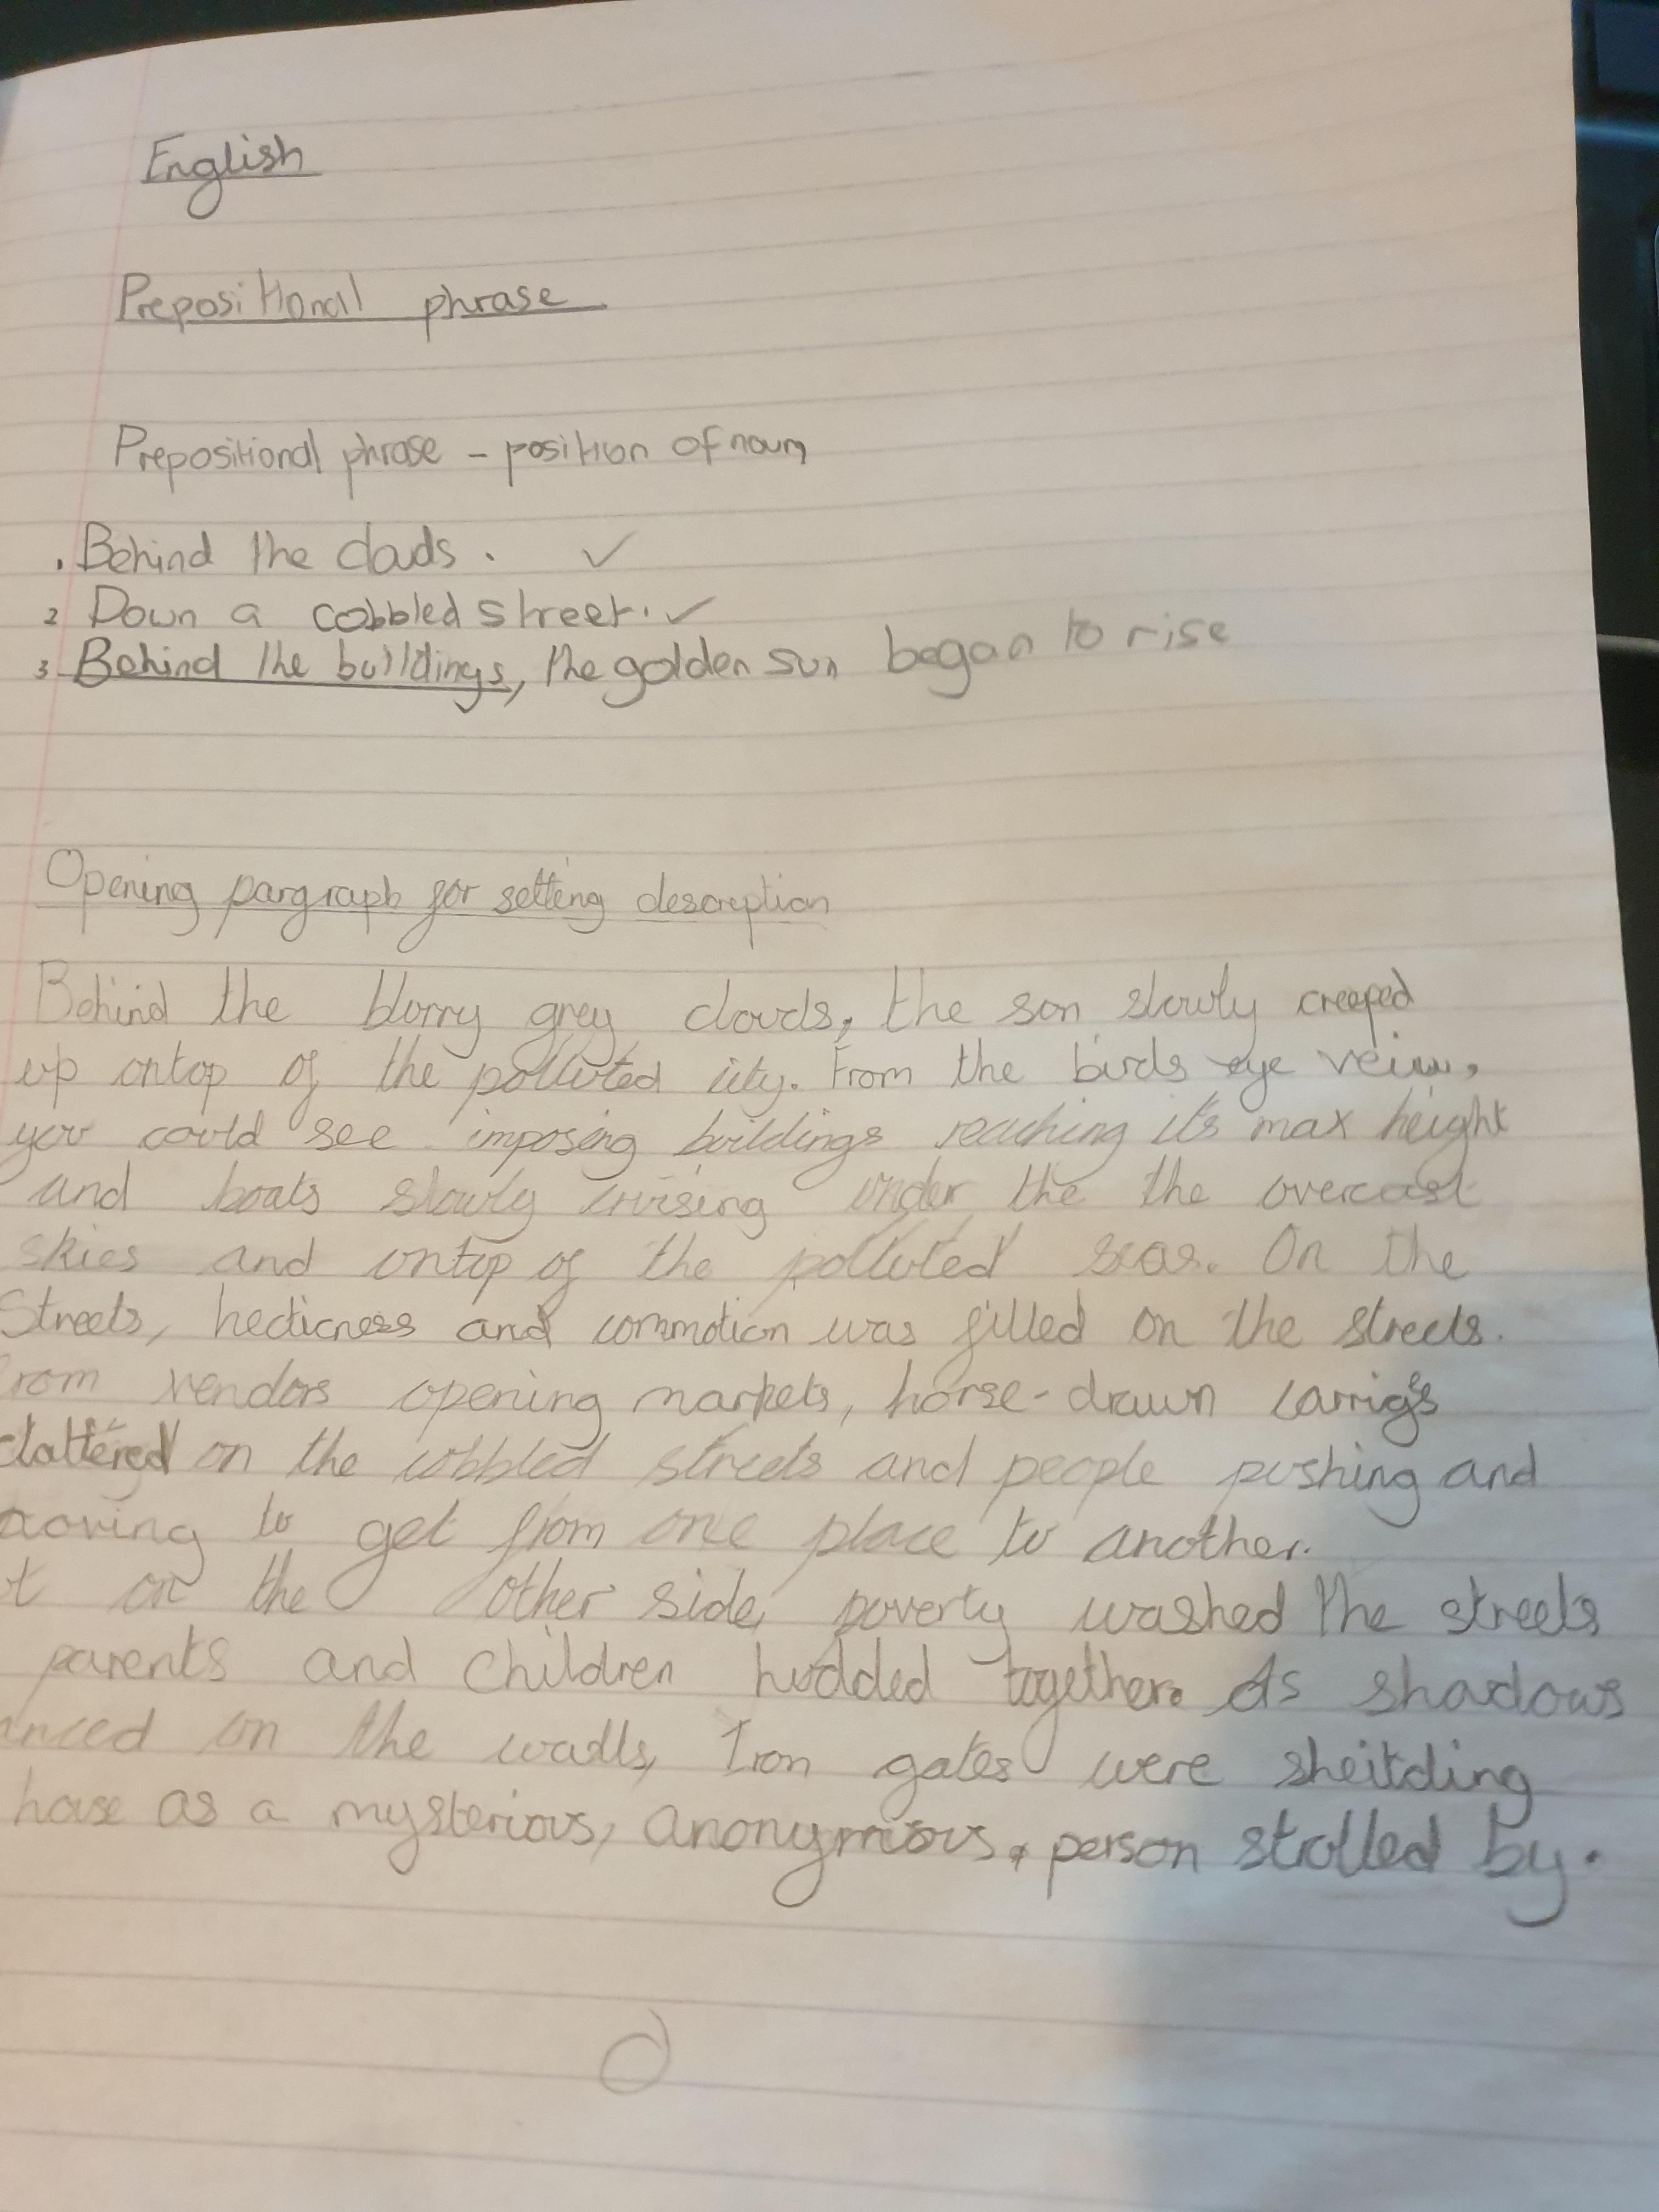 English
Prepositional phrase
Prepositional phrase - position of noun
1. Behind the clouds. ✓
2 Down a cobbled street. ✓
3. Behind the buildings, the golden sun began to rise
Opening pargraph for setting description
Behind the blurry grey clouds, the sun slowly creeped
up ontop of the polluted city. From the birds eye veiw,
you could see imposing buildings reaching it's max height
and boats slowly cruising under the the overcast
skies and ontop of the polluted seas. On the
Streets, hecticness and commotion was filled on the streets.
rom vendors opening markets, horse-drawn carrig's
clattered on the cobbled streets and people pushing and
to get from one place to another.
t on the other side, poverty washed the streets
parents and children hudded together. As shadows
anced on the walls, Iron gates were sheilding
house as a mysterious, anonymous, person strolled by.